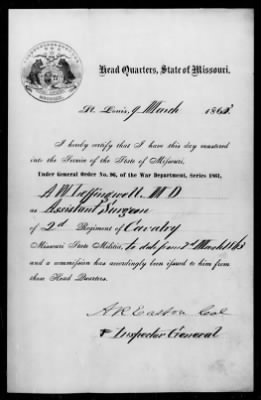 Head Quarters, State of Missouri.
St. Louis, 9 March 1863
I hereby certify that I have this day mustered
into the Service of the State of Missouri,
Under General Order No. 96, of the War Department, Series 1861,
A W Leffingwell M D
as Assistant Surgeon
of 2d Regiment of Cavalry
Missouri State Militia, to date from 2d March 1863
and a commission has accordingly been issued to him from
these Head Quarters.
A R Easton Col
& Inspector General